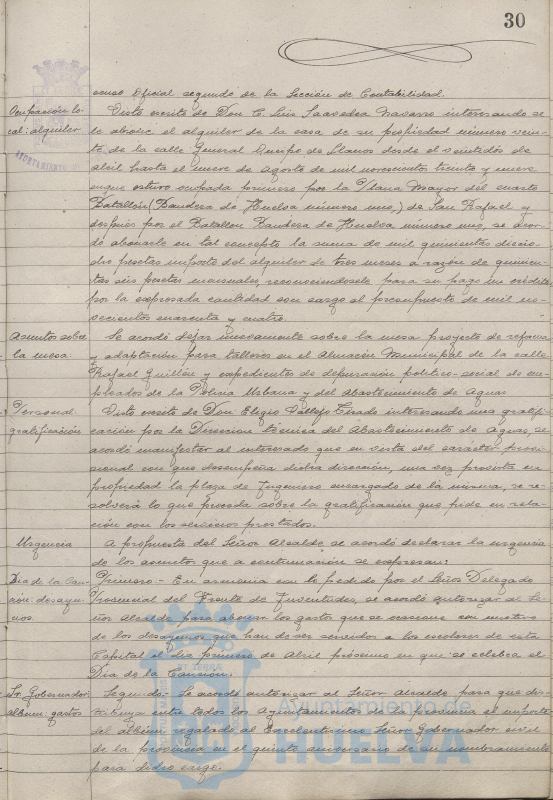 30
censo Oficial segundo de la Sección de Contabilidad.
Ocupación lo-
cal: alquiler
Visto escrito de Don C. Luis Saavedra Navarro interesando se
le abone el alquiler de la casa de su propiedad número vein-
te de la calle General Queipo de Llanos desde el veintidós de
abril hasta el nueve de agosto de mil novecientos treinta y nueve
en que estuvo ocupada primero por la Plana Mayor del cuarto
Batallón (Bandera de Huelva número uno,) de San Rafael y
después por el Batallón Bandera de Huelva número uno, se acor-
dó abonarle en tal concepto la suma de mil quinientas diecio-
cho pesetas importe del alquiler de tres meses a razón de quinien-
tas seis pesetas mensuales, reconociéndosele para su pago un crédito
por la expresada cantidad con cargo al presupuesto de mil no-
vecientos cuarenta y cuatro.
Asuntos sobre
la mesa
Se acordó dejar nuevamente sobre la mesa proyecto de reforma
y adaptación para talleres en el Almacén Municipal de la calle
Rafael Guillén y expedientes de depuración político-social de em-
pleados de la Policía Urbana y del Abastecimiento de Aguas
Personal
gratificación
Visto escrito de Don Eligio Vallejo Tirado interesando una gratifi-
cación por la Dirección técnica del Abastecimiento de Aguas, se
acordó manifestar al interesado que en vista del carácter provi-
sional con que desempeña dicha dirección, una vez provista en
propiedad la plaza de Ingeniero encargado de la misma, se re-
solverá lo que proceda sobre la gratificación que pide en rela-
ción con los servicios prestados.
Urgencia
A propuesta del Señor Alcalde se acordó declarar la urgencia
de los asuntos que a continuación se expresan:
Día de la Can-
ción: desayu-
nos
Primero.- En armonía con lo pedido por el Señor Delegado
Provincial del Frente de Juventudes, se acordó autorizar al Se-
ñor Alcalde para abonar los gastos que se ocasionen con motivo
de los desayunos que han de ser servidos a los escolares de esta
Capital el día primero de Abril próximo en que se celebra el
Día de la Canción.
Sr. Gobernador:
álbum: gastos
Segundo.- Se acordó autorizar al Señor Alcalde para que dis-
tribuya entre todos los Ayuntamientos de la provincia el importe
del álbum regalado al Excelentísimo Señor Gobernador civil
de la provincia en el quinto aniversario de su nombramiento
para dicho cargo.
Ayuntamiento de
HUELVA